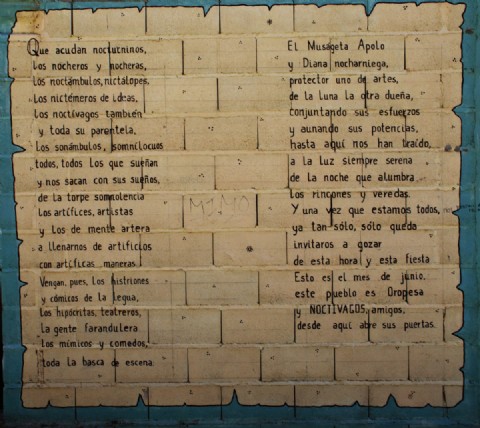 Que acudan noctucninos,
los nocheros y nocheras,
los noctámbulos, nictálopes,
los nictémeros de ideas,
los noctívagos también
y toda su parentela,
los sonámbulos, somnílocuos
todos, todos los que sueñan
y nos sacan con sus sueños,
de la torpe somnolencia
los artífices, artistas
y los de mente artera
a llenarnos de artificios
con artíficas maneras.
Vengan, pues, los histriones
y cómicos de la legua,
los hipócritas, teatreros,
la gente farandulera
los mímicos y comedos,
toda la basca de escena.
El Musageta Apolo
y Diana nocharniega,
protector uno de artes,
de la Luna la otra dueña,
conjuntando sus esfuerzos
y aunando sus potencias,
hasta aquí nos han traído,
a la luz siempre serena
de la noche que alumbra
los rincones y veredas.
Y una vez que estamos todos,
ya tan sólo, sólo queda
invitaros a gozar
de esta hora y esta fiesta
Esto es el mes de junio,
este pueblo es Oropesa
y NOCTIVAGOS, amigos,
desde aquí abre sus puertas.